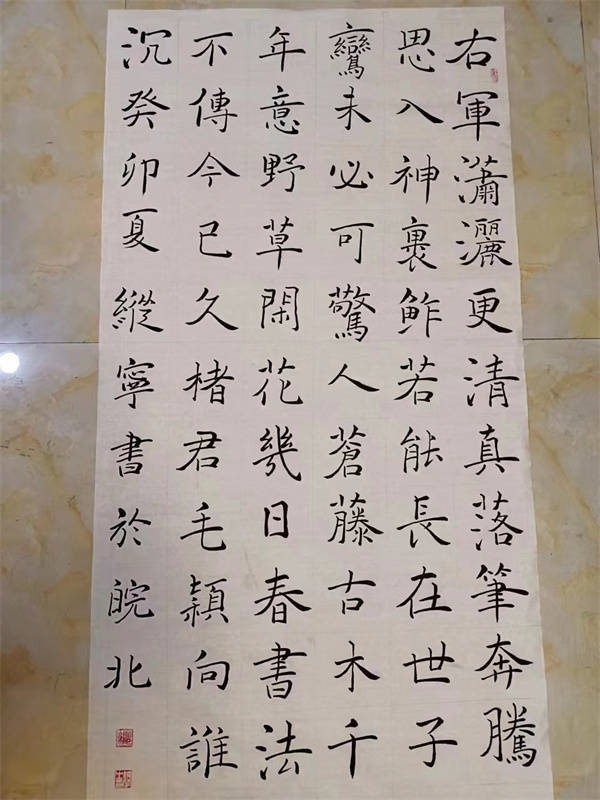 右軍瀟灑更清真落筆奔騰
思入神裏鮓若能長在世子
鸞未必可驚人蒼藤古木千
年意野草閑花幾日春書法
不傳今已久楮君毛穎向誰
沉癸卯夏縱寧書於皖北